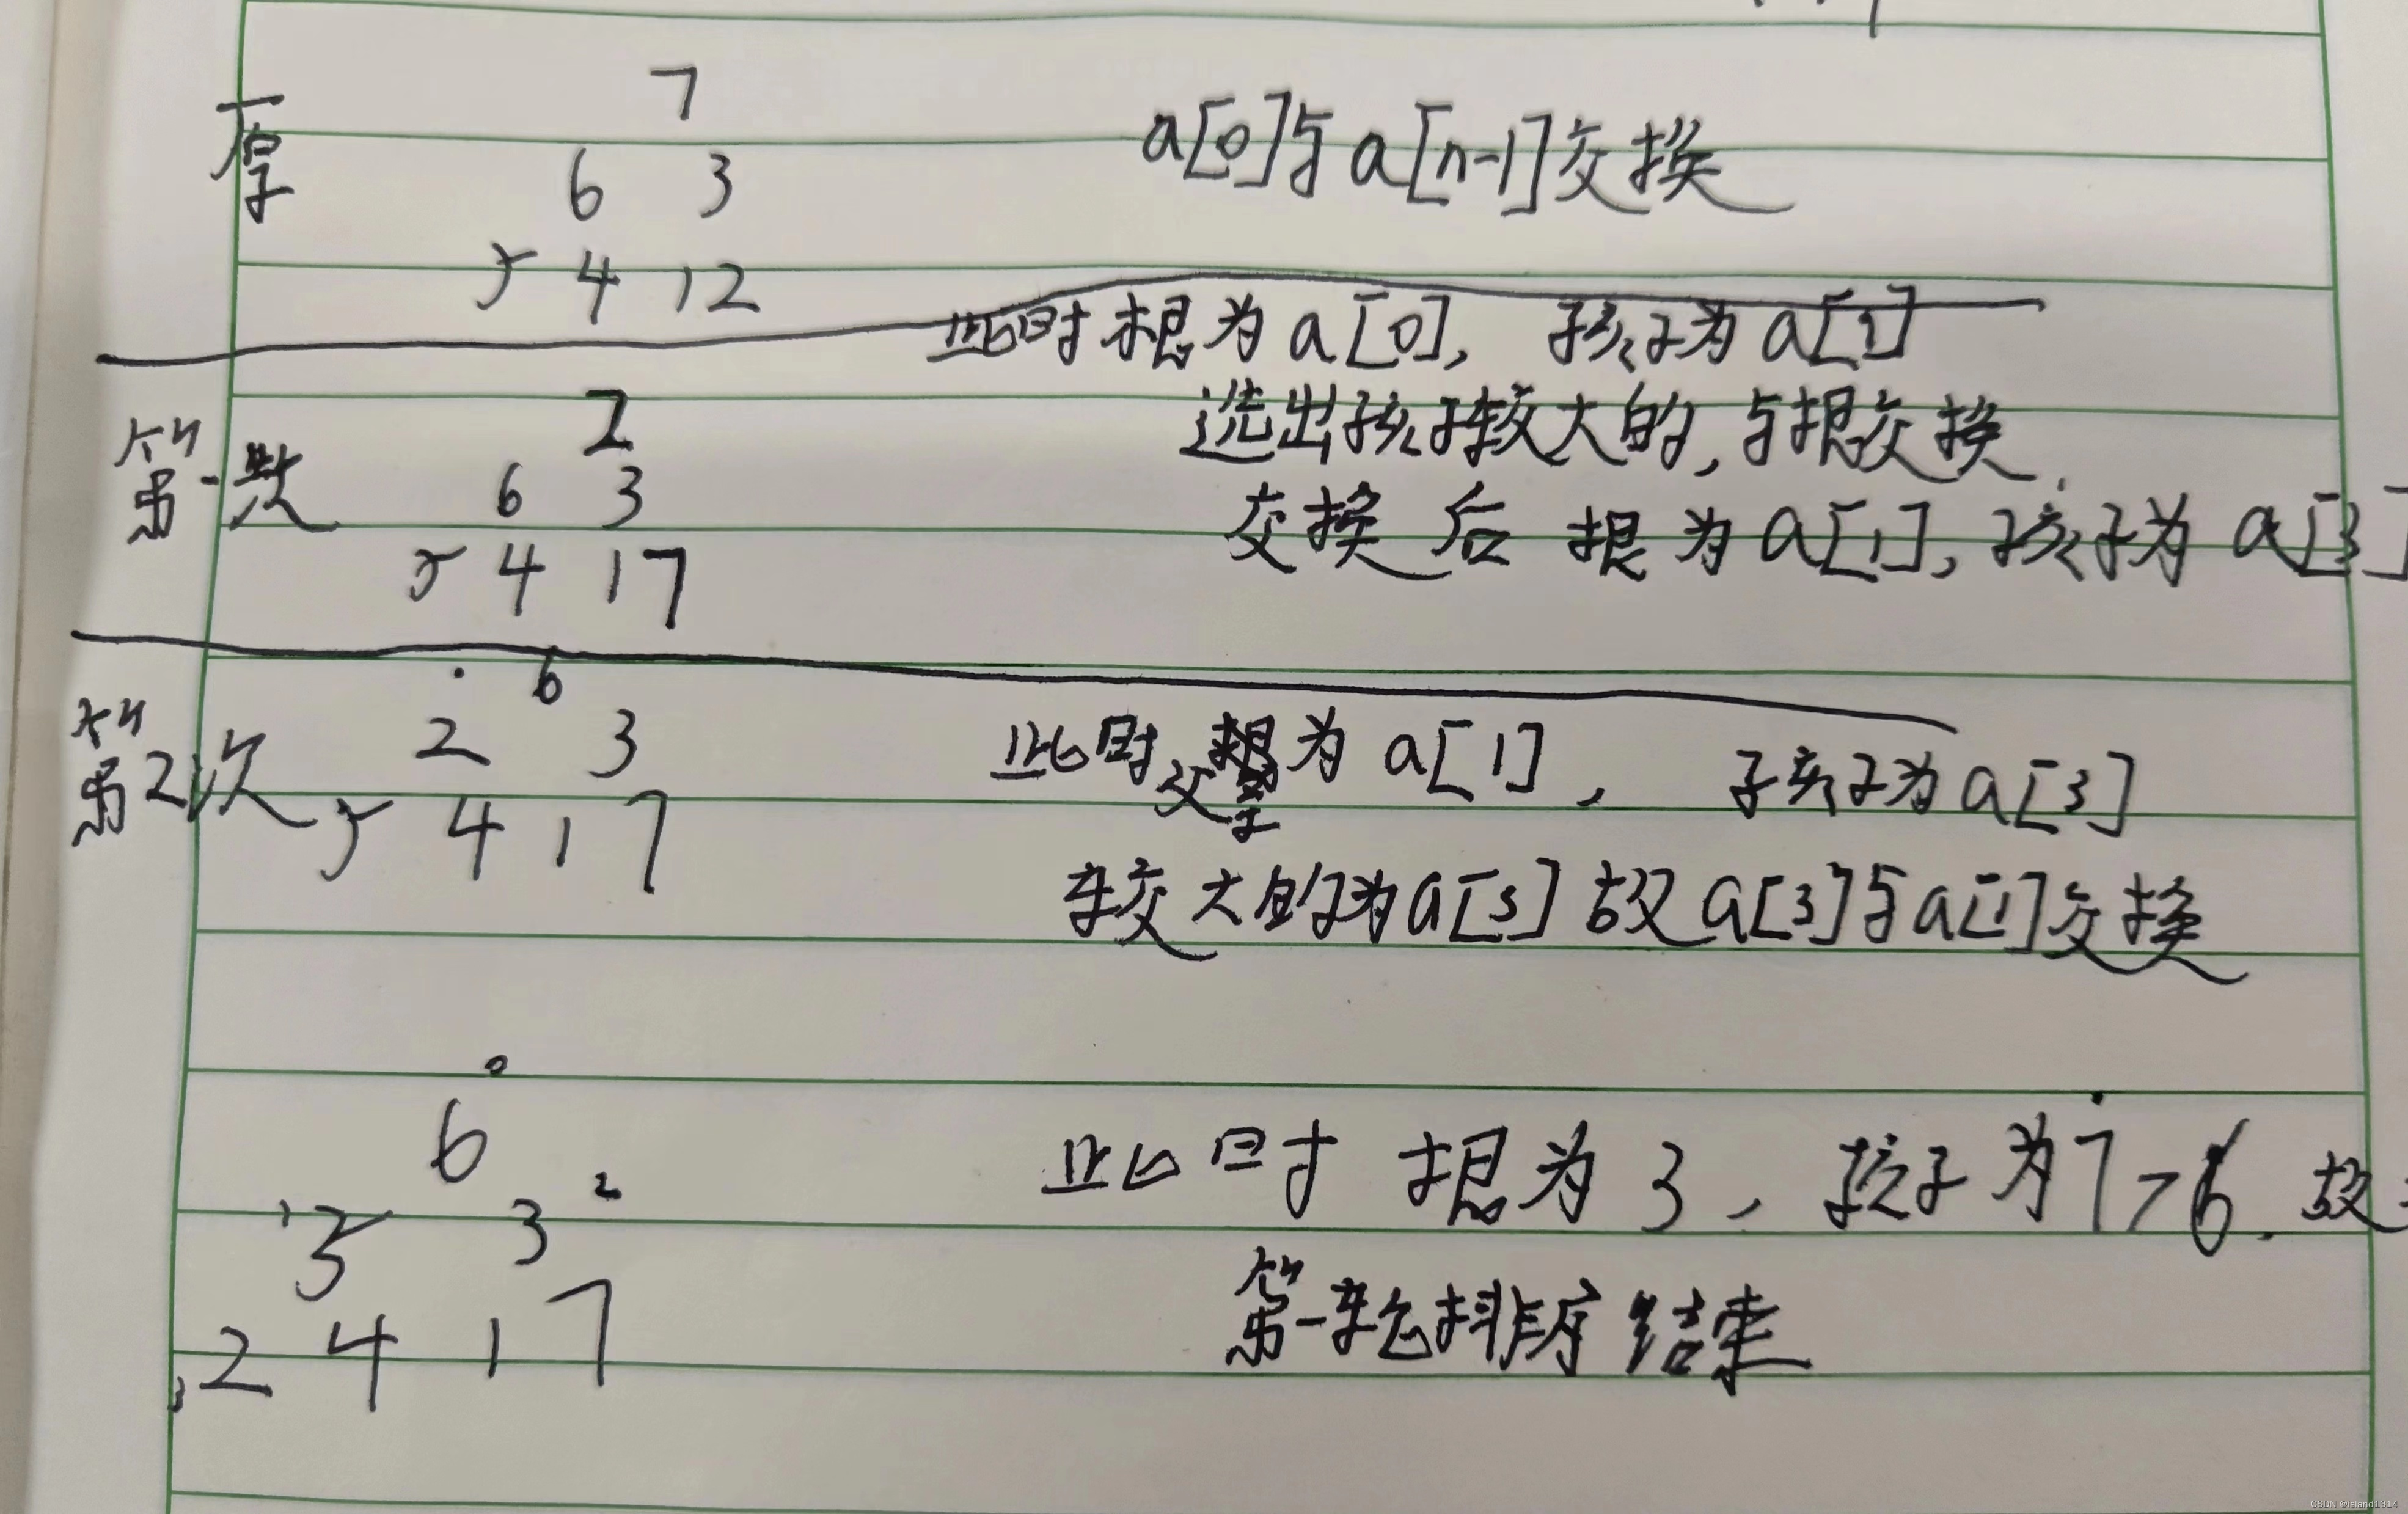 原
7
a[0]与a[n-1]交换
6 3
5 4 1 2
此时根为a[0], 孩子为a[1]
2
选出孩子较大的,与根交换.
第一次
6 3
交换后 根为a[1],孩子为a[3]
5 4 1 7
6
第2次
2 3
此时父 为a[1], 子孩子为a[3]
5 4 1 7
较大的为a[3]故a[3]与a[1]交换
0
6
此时根为3, 孩子为7>6.故
1 5 3 2
第一轮排序结束
3 2 4 1 7
CSDN @island1314